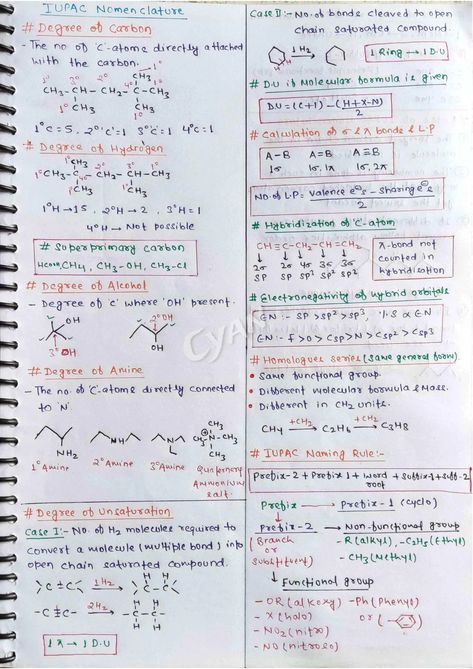 IUPAC Nomenclature
# Degree of Carbon
- The no of 'C'-atoms directly attached
with the carbon.
CH3 1°
1° 3° 2°
CH3-CH-CH2-C-CH3
CH3 CH3
1° 1°
1°C=5, 2°'C'=1 3°'C'=1 4°C=1
# Degree of Hydrogen
1°CH3
1°CH3-C-CH2-CH-CH3
CH3 CH3
1°H→15, 2°H→2, 3°H=1
4°H→ Not possible
# Superprimary carbon
HCOOH, CH4, CH3-OH, CH3-Cl
# Degree of Alcohol
- Degree of 'C' where 'OH' present.
OH 2° OH
3° OH
# Degree of Amine
- The no. of 'C'-atoms directly connected
to 'N'
NH2 NH N
CH3
CH3-N-CH3
CH3
1° Amine 2° Amine 3° Amine Quaternary
Ammonium
salt.
# Degree of Unsaturation
Case I:- No. of H2 molecules required to
convert a molecule (multiple bond) into
open chain saturated compound.
C=C 1H2 C-C
H H
-C≡C- 2H2 -C-C-
H H
1π → 1 D.U
Case II:- No. of bonds cleaved to open
chain saturated compound.
1H2 1 Ring → 1 D.U
H H
# D.U if Molecular formula is given
DU = (C+1) - (H+X-N)/2
# Calculation of σ & π bonds & L.P
A-B A=B A≡B
1σ 1σ, 1π 1σ, 2π
NO. of L.P = valence e⊖s - sharing e⊖s / 2
# Hybridization of 'C'-atom
CH≡C-CH2-CH=CH2
2σ 2σ 4σ 3σ 3σ
SP SP SP3 SP2 SP2
π-bond not
counted in
hybridisation
# Electronegativity of hybrid orbitals
EN:- SP > SP2 > SP3, %S ∝ EN
EN:- F>O>Csp>N>Csp2>Csp3
# Homologues series (same general form).
• Same functional group.
• Different molecular formula & Mass.
• Different in CH2 units.
CH4 +CH2 → C2H6 +CH2 → C3H8
# IUPAC Naming Rule:-
Prefix-2 + Prefix 1 + word + suffix-1 + suff-2
root
Prefix → Prefix-1 (cyclo)
Prefix-2 → Non-functional group
(Branch - R(alkyl), -C2H5(Ethyl)
or - CH3(Methyl)
substituent)
Functional group
- OR(alkoxy) -Ph (Phenyl)
- X(halo) or
- NO2(nitro)
- NO(nitroso)